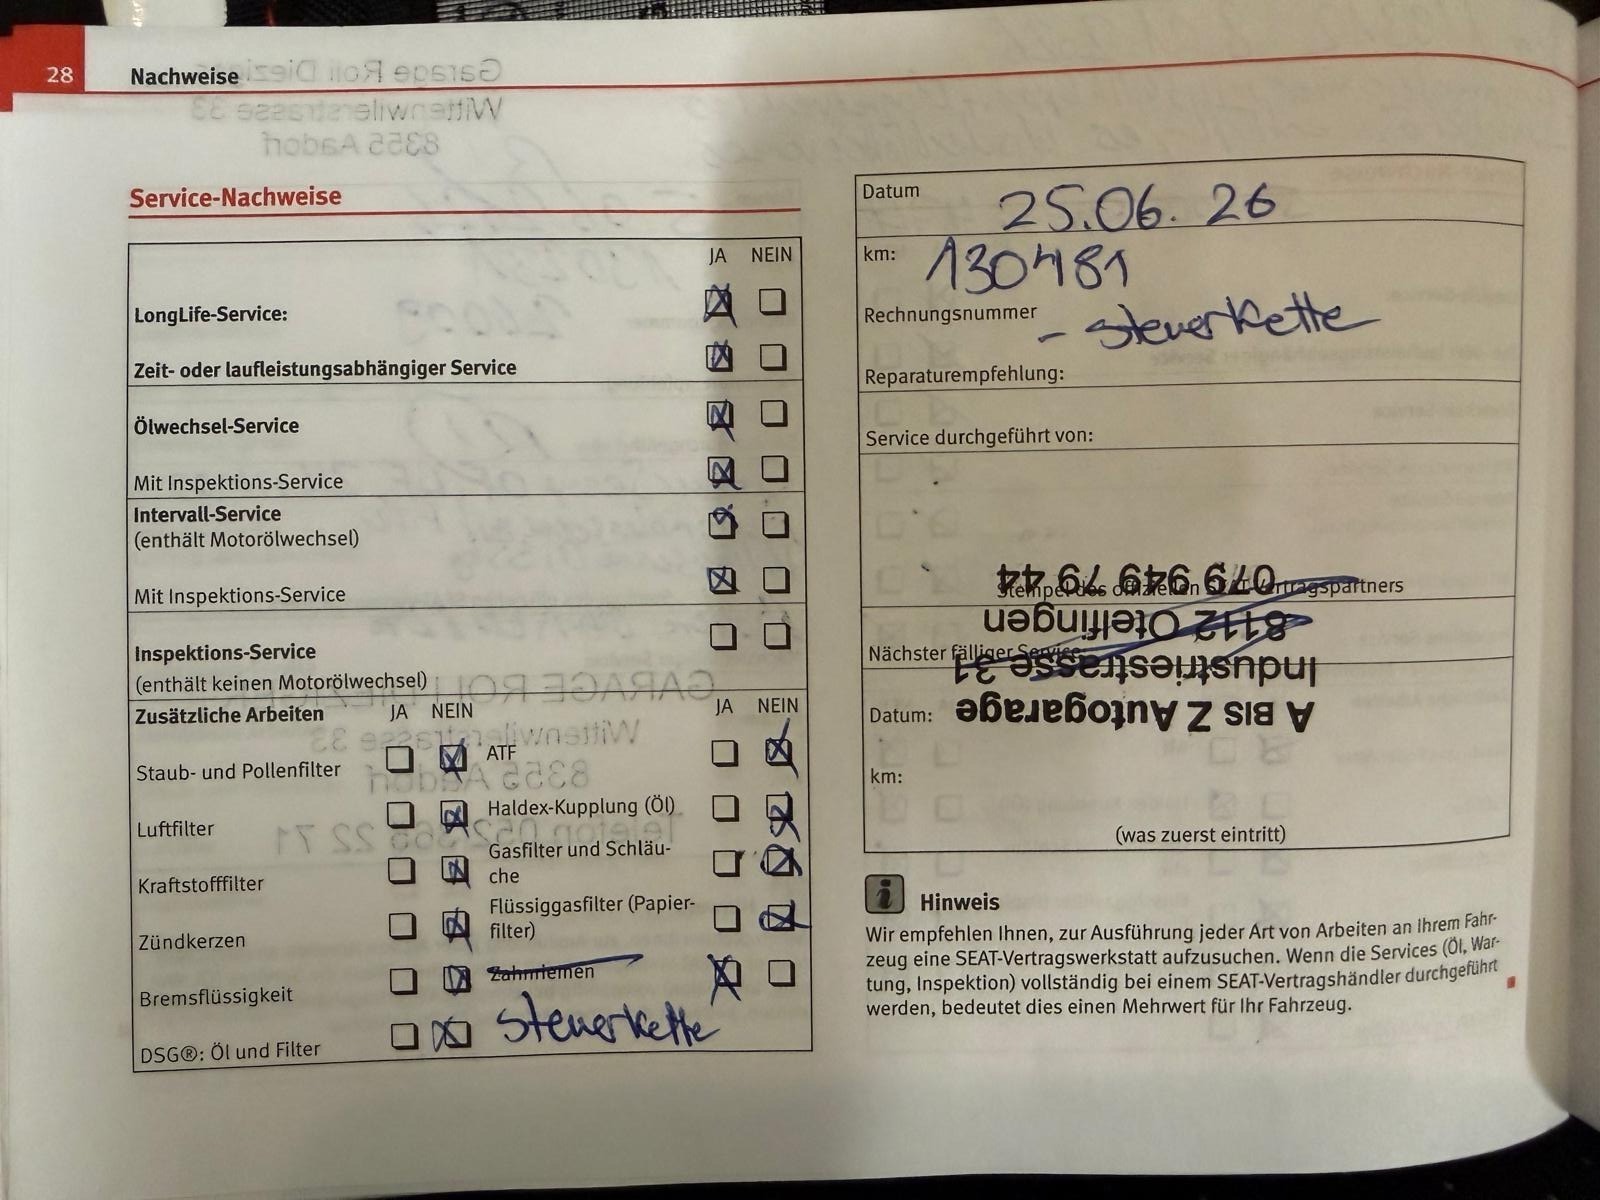 28 Nachweise
Garage Roli Diezig
Wittenwilerstrasse 33
8355 Aadorf
Service-Nachweise
JA NEIN
LongLife-Service:
Zeit- oder laufleistungsabhängiger Service
Ölwechsel-Service
Mit Inspektions-Service
Intervall-Service
(enthält Motorölwechsel)
Mit Inspektions-Service
Inspektions-Service
(enthält keinen Motorölwechsel)
GARAGE ROLI DIEZIG
Wittenwilerstrasse 33
8355 Aadorf
Telefon 052 365 22 71
Zusätzliche Arbeiten JA NEIN JA NEIN
Staub- und Pollenfilter
ATF
Luftfilter
Haldex-Kupplung (Öl)
Kraftstofffilter
Gasfilter und Schläu-
che
Zündkerzen
Flüssiggasfilter (Papier-
filter)
Bremsflüssigkeit
Zahnriemen
DSG®: Öl und Filter
Steuerkette
Datum 25.06.26
km: 130481
Rechnungsnummer
- Steuerkette
Reparaturempfehlung:
Service durchgeführt von:
Stempel des offiziellen SEAT-Vertragspartners
Nächster fälliger Service:
Datum:
km:
(was zuerst eintritt)
A BIS Z Autogarage
Industriestrasse 31
8112 Otelfingen
079 949 79 44
Hinweis
Wir empfehlen Ihnen, zur Ausführung jeder Art von Arbeiten an Ihrem Fahr-
zeug eine SEAT-Vertragswerkstatt aufzusuchen. Wenn die Services (Öl, War-
tung, Inspektion) vollständig bei einem SEAT-Vertragshändler durchgeführt
werden, bedeutet dies einen Mehrwert für Ihr Fahrzeug.